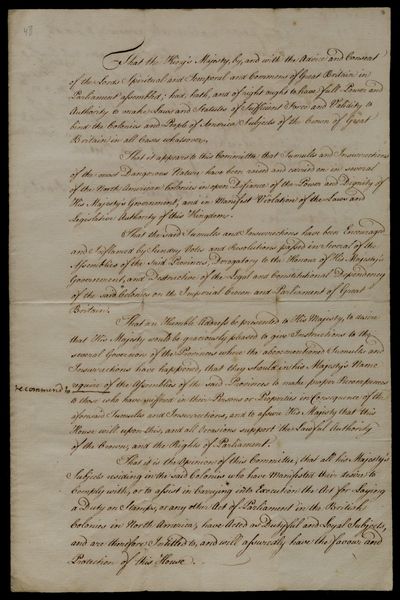 48
That the King's Majesty, by, and with the Advice and Consent
of the Lords Spiritual and Temporal and Commons of Great Britain in
Parliament assembled; had, hath, and of right ought to have full Power and
Authority to make Laws and Statutes of Sufficient Force and Validity to
bind the Colonies and People of America Subjects of the Crown of Great
Britain in all Cases whatsoever.
That it appears to this Committee, that Tumults and Insurrections
of the most Dangerous Nature have been raised and carried on in several
of the North American Colonies in open Defiance of the Power and Dignity of
His Majesty's Government, and in Manifest Violation of the Laws and
Legislative Authority of this Kingdom.
That the said Tumults and Insurrections have been Encouraged
and Inflamed by Sundry Votes and Resolutions passed in Several of the
Assemblies of the said Provinces, Derogatory to the Honour of His Majesty's
Government, and Destructive of the Legal and Constitutional Dependency
of the said Colonies on the Imperial Crown and Parliament of Great
Britain.
That an Humble Address be presented to His Majesty, to desire
that His Majesty would be graciously pleased to give Instructions to the
several Governors of the Provinces where the abovementioned Tumults and
Insurrections have happened, that they should in his Majesty's Name
recommend to
require of the Assemblies of the said Provinces to make proper Recompence
to those who have suffered in their Persons or Properties in Consequence of the
aforesaid Tumults and Insurrections, and to assure His Majesty that this
House will upon this, and all occasions support the Lawful Authority
of the Crown, and the Rights of Parliament.
That it is the Opinion of this Committee, that all his Majesty's
Subjects residing in the said Colonies who have Manifested their desire to
Comply with, or to assist in Carrying into Execution the Act for Laying
a Duty on Stamps, or any other Act of Parliament in the British
Colonies in North America, have Acted as Dutifull and Loyal Subjects,
and are therefore Intitled to, and will assuredly have the favour and
Protection of this House.